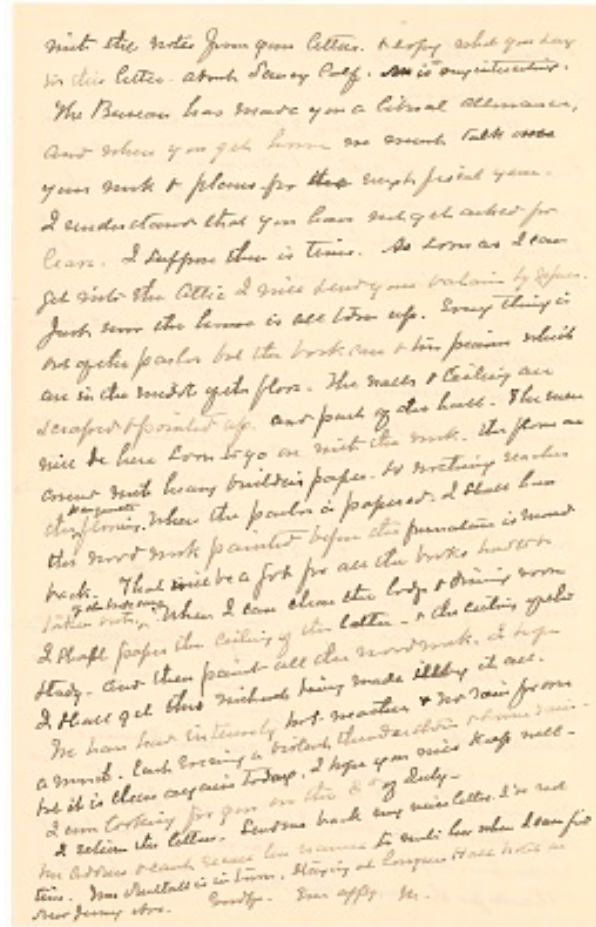 with the notes from your letter. I copy what you say
in this letter about Saucy Calf. It is very interesting.
The Bureau has made you a liberal allowance,
and when you get home we must talk over
your work & plans for the next fiscal year.
I understand that you have not yet asked for
leave. I suppose there is time. As soon as I can
get into the Attic I will send your valise by Express.
Just now the house is all torn up. Everything is
out of the parlor but the book case & the piano which
are in the middle of the floor. The walls & ceiling are
scraped & pointed up. and part of the hall. The men
will be here soon to go on with the work. The floors are
covered with heavy builders paper. so nothing reaches
the flooring. When the parlor is papered. I shall have
the wood work painted before the furniture is moved
back. That will be a job for all the books have to be
taken out. When I can close the lodge & dining room
I shall paper the ceiling of the latter. & the ceiling of the
study. and then paint all the wood work. I hope
I shall get this without being made ill by it all.
We have had intensely hot weather & no rain for over
a month. Each evening a violent thunder storm & some rain
but it is clear again today. I hope you will keep well.
I am looking for you on the 8th of July.
I return the letter. Send me back my niece letter. I've not
her address & can't recall her name to write her when I can find
time. Mrs is in town. Staying at Congress Hall Hotel on
New Jersey Ave. Goodbye. Ever affy. M.